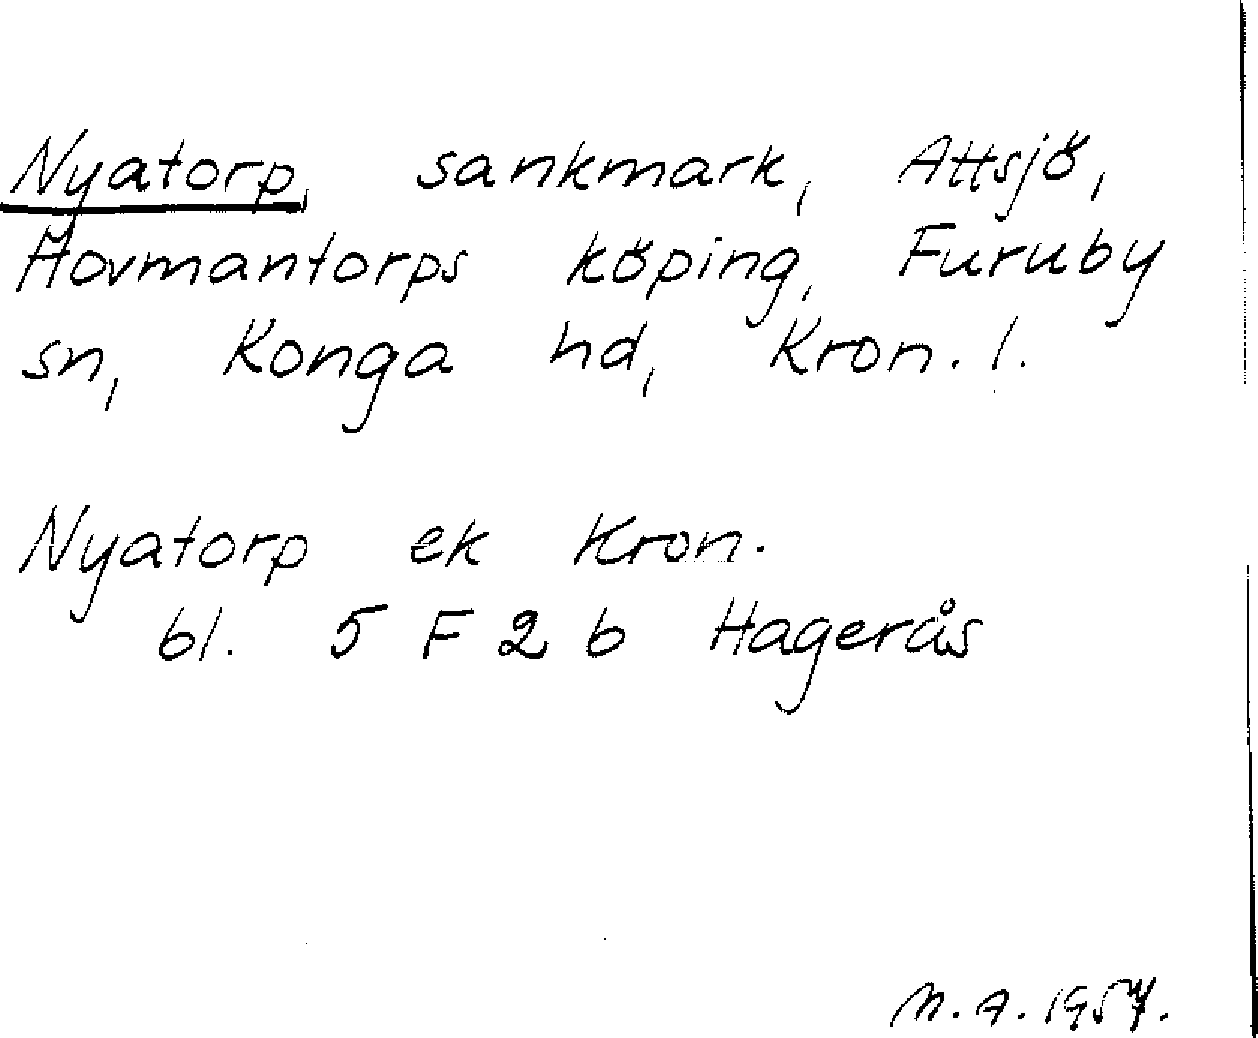 Nyatorp, sankmark, Attsjö,
Hovmantorps köping, Furuby
sn, Konga hd, Kron. l.
Nyatorp ek Kron.
bl. 5 F 2 b Hagerås
M.A. 1957.